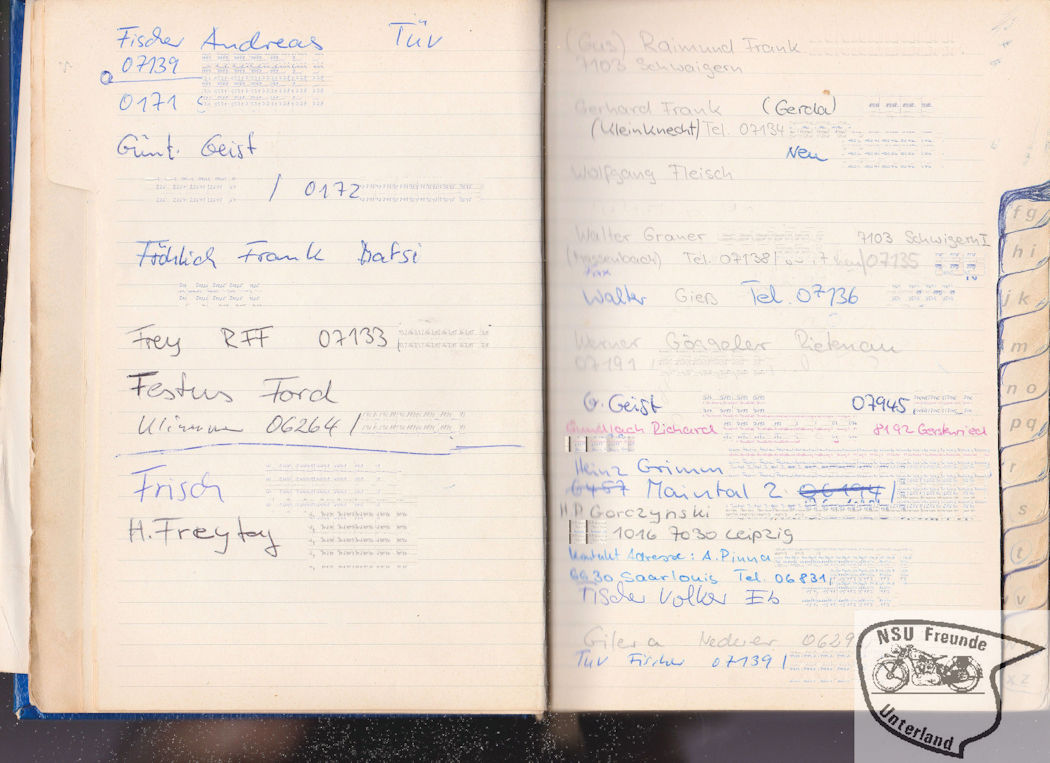 Fischer Andreas Tüv
07139
0171
Günt. Geist
/ 0172
Fröhlich Frank Datsi
Frey RFF 07133
Festus Ford
06264/
Frisch
H. Freytag
(Gus) Raimund Frank
7103 Schwaigern
Gerhard Frank (Gerda)
(Kleinknecht) Tel. 07134
Neu
Wolfgang Fleisch
Walter Graner 7103 Schwigern I
(Massenbach) Tel. 07138/ 07135
Walter Gieß Tel. 07136
Werner Göggeler Rietenau
07191
G. Geist 07945
Gundlach Richard 8192 Geretsried
Heinz Grimm
6457 Maintal 2 06194/
H.P. Gorczynski
1016 7030 Leipzig
Kontakt Adresse: A. Pinna
6630 Saarlouis Tel. 06831
Fischer Volker Eb
Gilera Nederer 0629
Tüv Fischer 07139/
f g
h i
j k
m
n o
p q
r
s
t
v
x z
NSU Freunde
Unterland